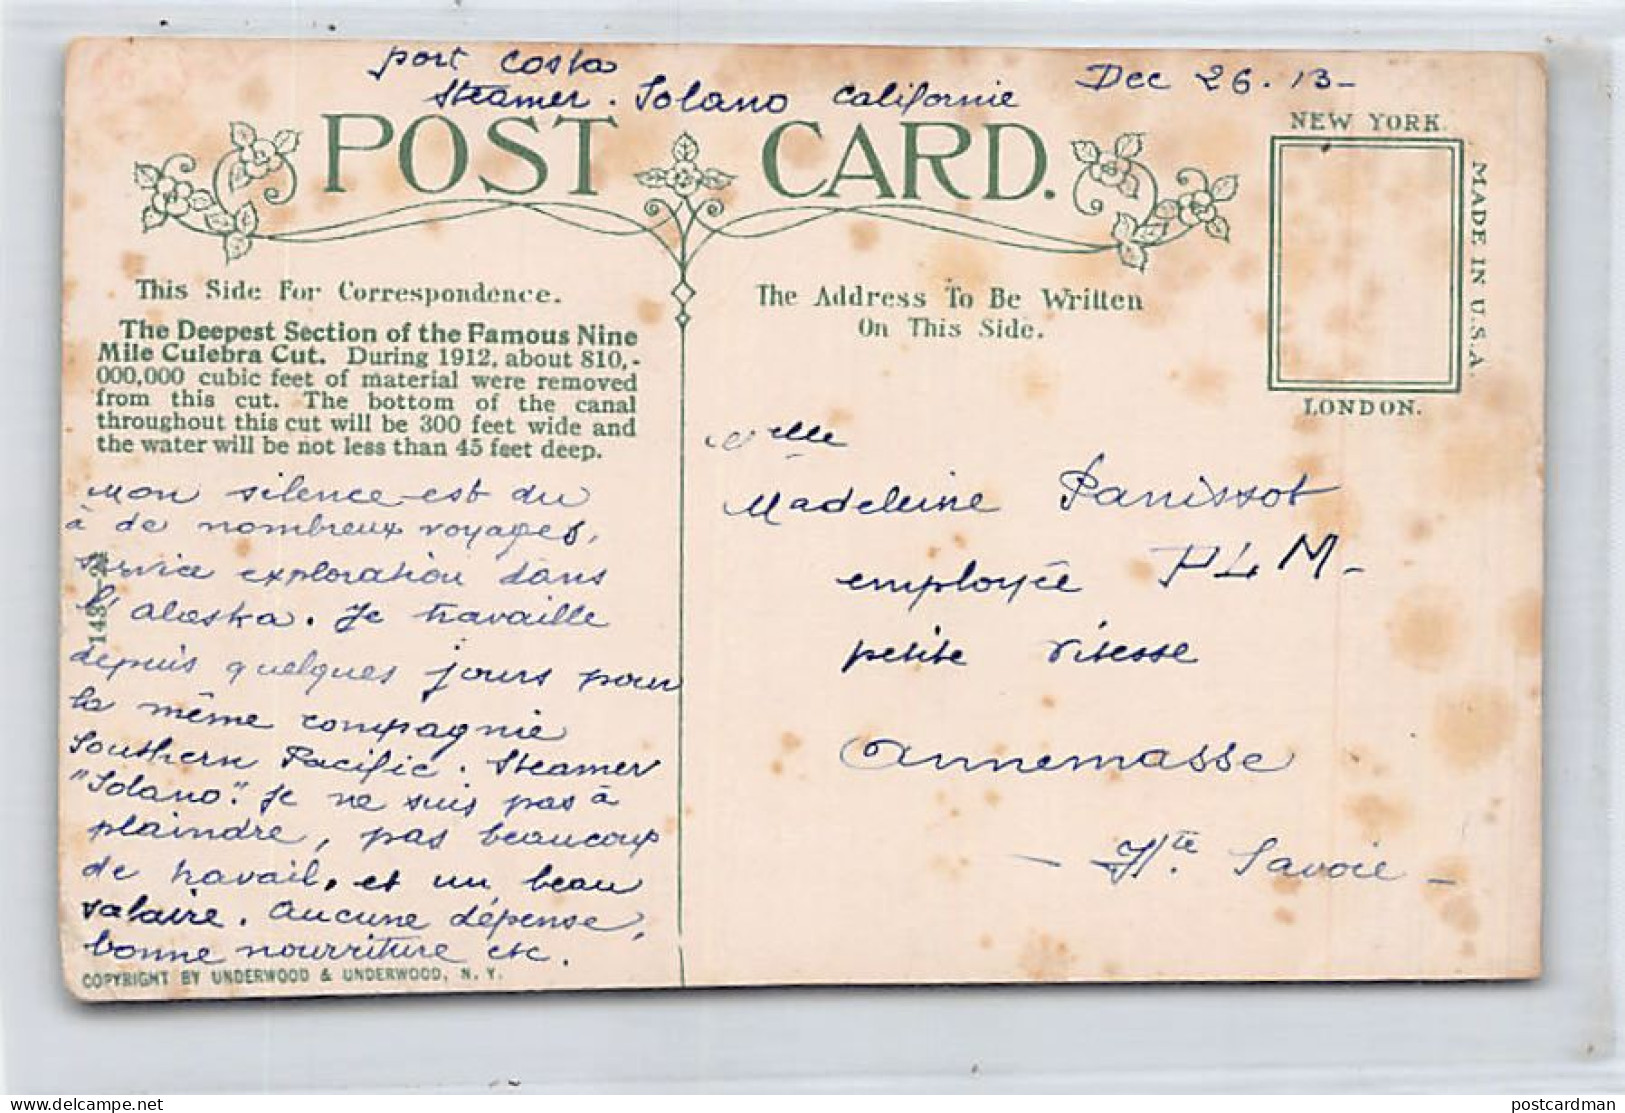 port Costa
Steamer. Solano Californie Dec 26. 13-
POST CARD.
NEW YORK.
MADE IN U.S.A.
LONDON.
This Side For Correspondence.
The Deepest Section of the Famous Nine
Mile Culebra Cut. During 1912, about 810,-
000,000 cubic feet of material were removed
from this cut. The bottom of the canal
throughout this cut will be 300 feet wide and
the water will be not less than 45 feet deep.
Mon silence est du
à de nombreux voyages,
service exploration dans
l'Alaska. Je travaille
depuis quelques jours pour
la même compagnie
Southern Pacific. Steamer
"Solano". Je ne suis pas à
plaindre, pas beaucoup
de travail, et un beau
salaire. Aucune dépense,
bonne nourriture etc.
COPYRIGHT BY UNDERWOOD & UNDERWOOD, N. Y.
The Address To Be Written
On This Side.
Melle
Madeleine Panissot
employée PLM-
petite vitesse
Annemasse
- Hte Savoie -
postcardman